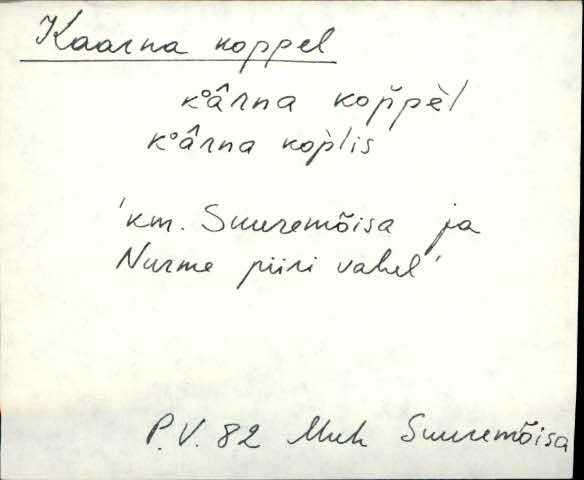 Kaarna koppel
k°ârna kop̌pèl
k°ârna kop̀lis
'km. Suuremõisa ja
Nurme piiri vahel'
P.V. 82 Muh Suuremõisa